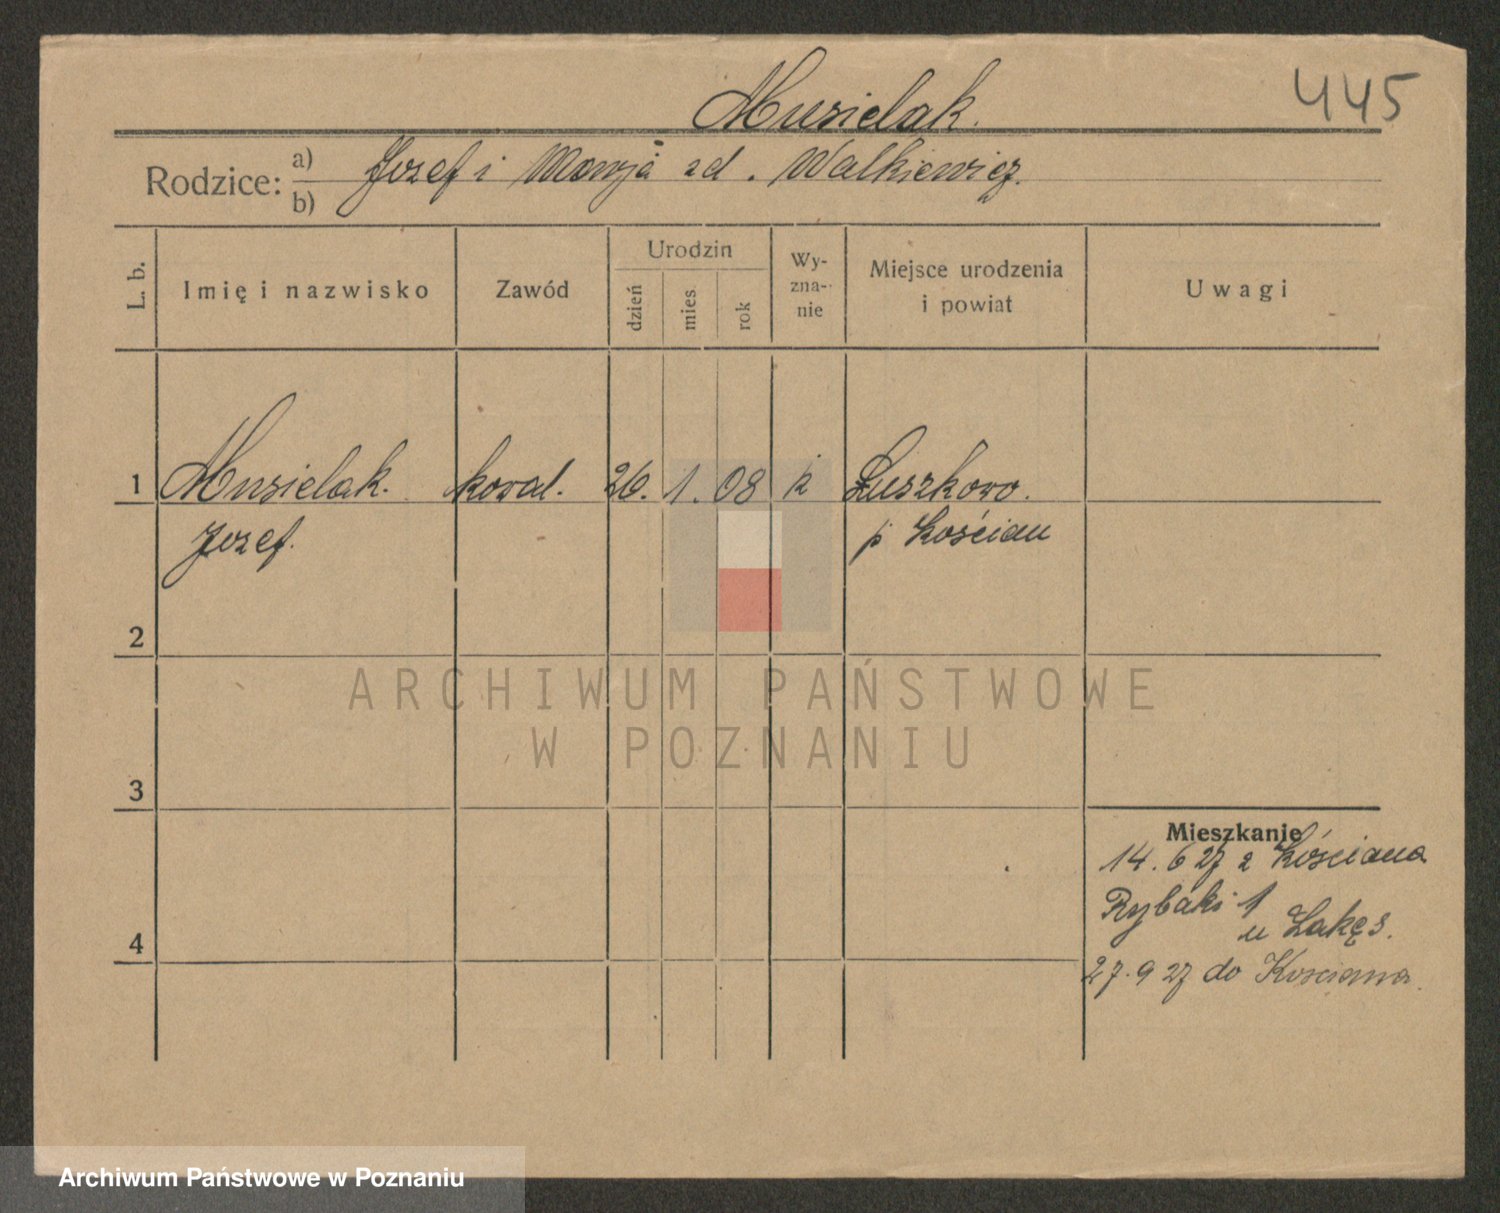 Musielak.
445
Rodzice: a) Jozef i Marja zd. Walkiewicz.
b)
L. b.
Imię i nazwisko
Zawód
Urodzin
dzień
mies
rok
Wy-
zna-
nie
Miejsce urodzenia
i powiat
Uwagi
1 Musielak. kowal. 26. 1. 08 k Łuszkowo.
Jozef. p Kościan
2
ARCHIWUM PAŃSTWOWE
W POZNANIU
3
Mieszkanie
14. 6 27 z Kościana
Rybaki 1
u
4
27. 9 27 do Kosciana.
Archiwum Państwowe w Poznaniu